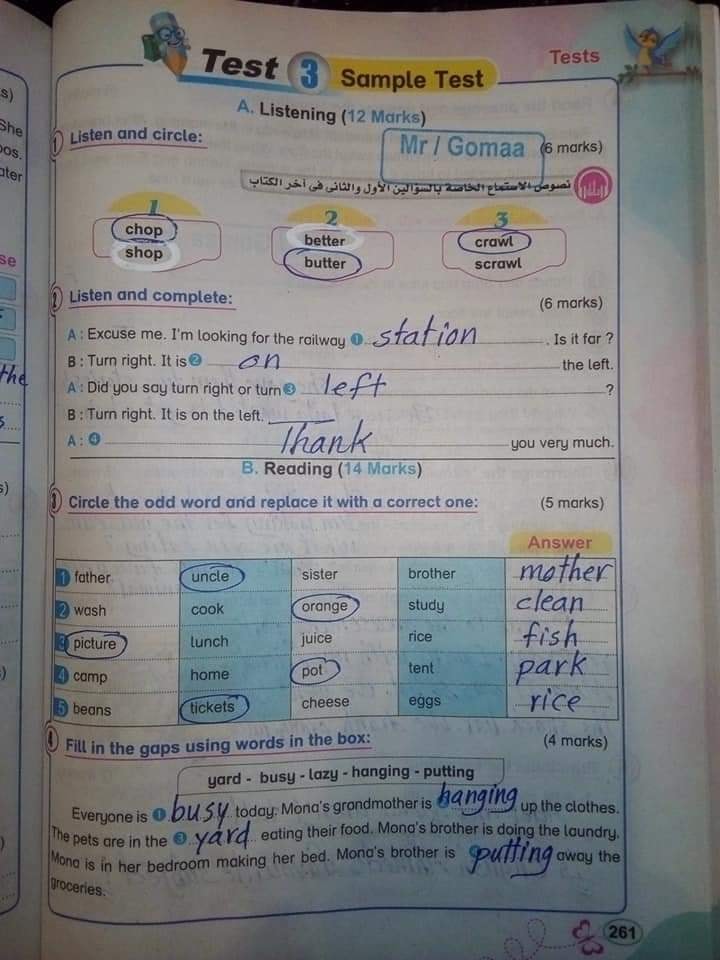 Test 3 Sample Test
Tests
A. Listening (12 Marks)
1 Listen and circle: (6 marks)
Mr / Gomaa
نصوص الاستماع الخاصة بالسؤالين الأول والثانى فى آخر الكتاب
1 2 3
chop better crawl
shop butter scrawl
2 Listen and complete: (6 marks)
A : Excuse me. I'm looking for the railway 1 station . Is it far ?
B : Turn right. It is 2 on the left.
A : Did you say turn right or turn 3 left ?
B : Turn right. It is on the left.
A : 4 Thank you very much.
B. Reading (14 Marks)
3 Circle the odd word and replace it with a correct one: (5 marks)
Answer
1 father uncle sister brother mother
2 wash cook orange study clean
3 picture lunch juice rice fish
4 camp home pot tent park
5 beans tickets cheese eggs rice
4 Fill in the gaps using words in the box: (4 marks)
yard - busy - lazy - hanging - putting
Everyone is 1 busy today. Mona's grandmother is hanging up the clothes.
The pets are in the 3 yard eating their food. Mona's brother is doing the laundry.
Mona is in her bedroom making her bed. Mona's brother is putting away the
groceries.
261